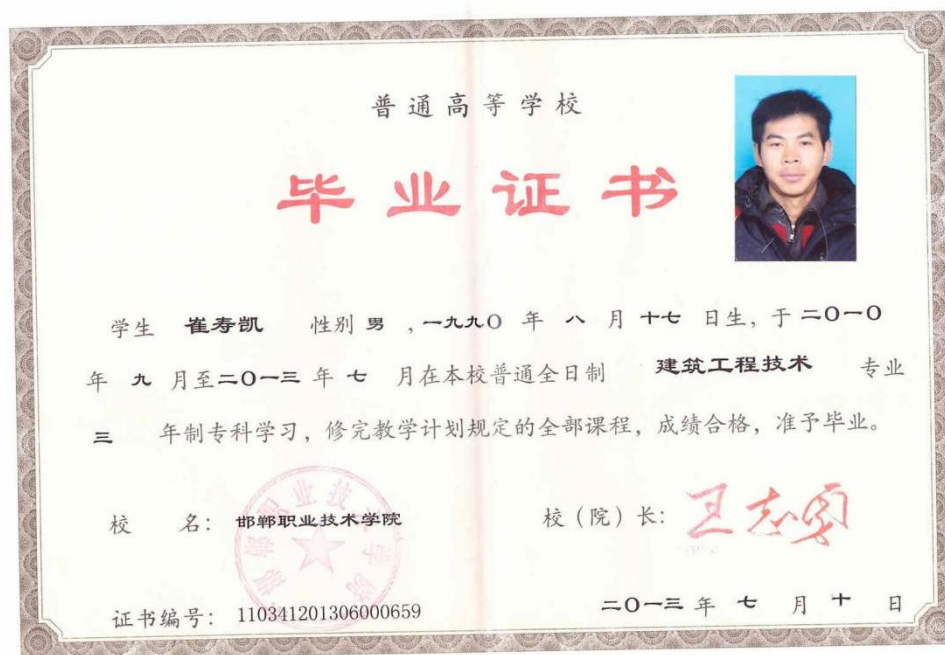 普通高等学校
毕业证书
学生 崔寿凯 性别 男 ,一九九〇 年 八 月 十七 日生, 于 二〇一〇
年 九 月至二〇一三 年 七 月在本校普通全日制 建筑工程技术 专业
三 年制专科学习, 修完教学计划规定的全部课程, 成绩合格, 准予毕业。
邯郸职业技术学院
校 名: 邯郸职业技术学院 校(院)长: 王志勇
证书编号: 110341201306000659 二〇一三 年 七 月 十 日